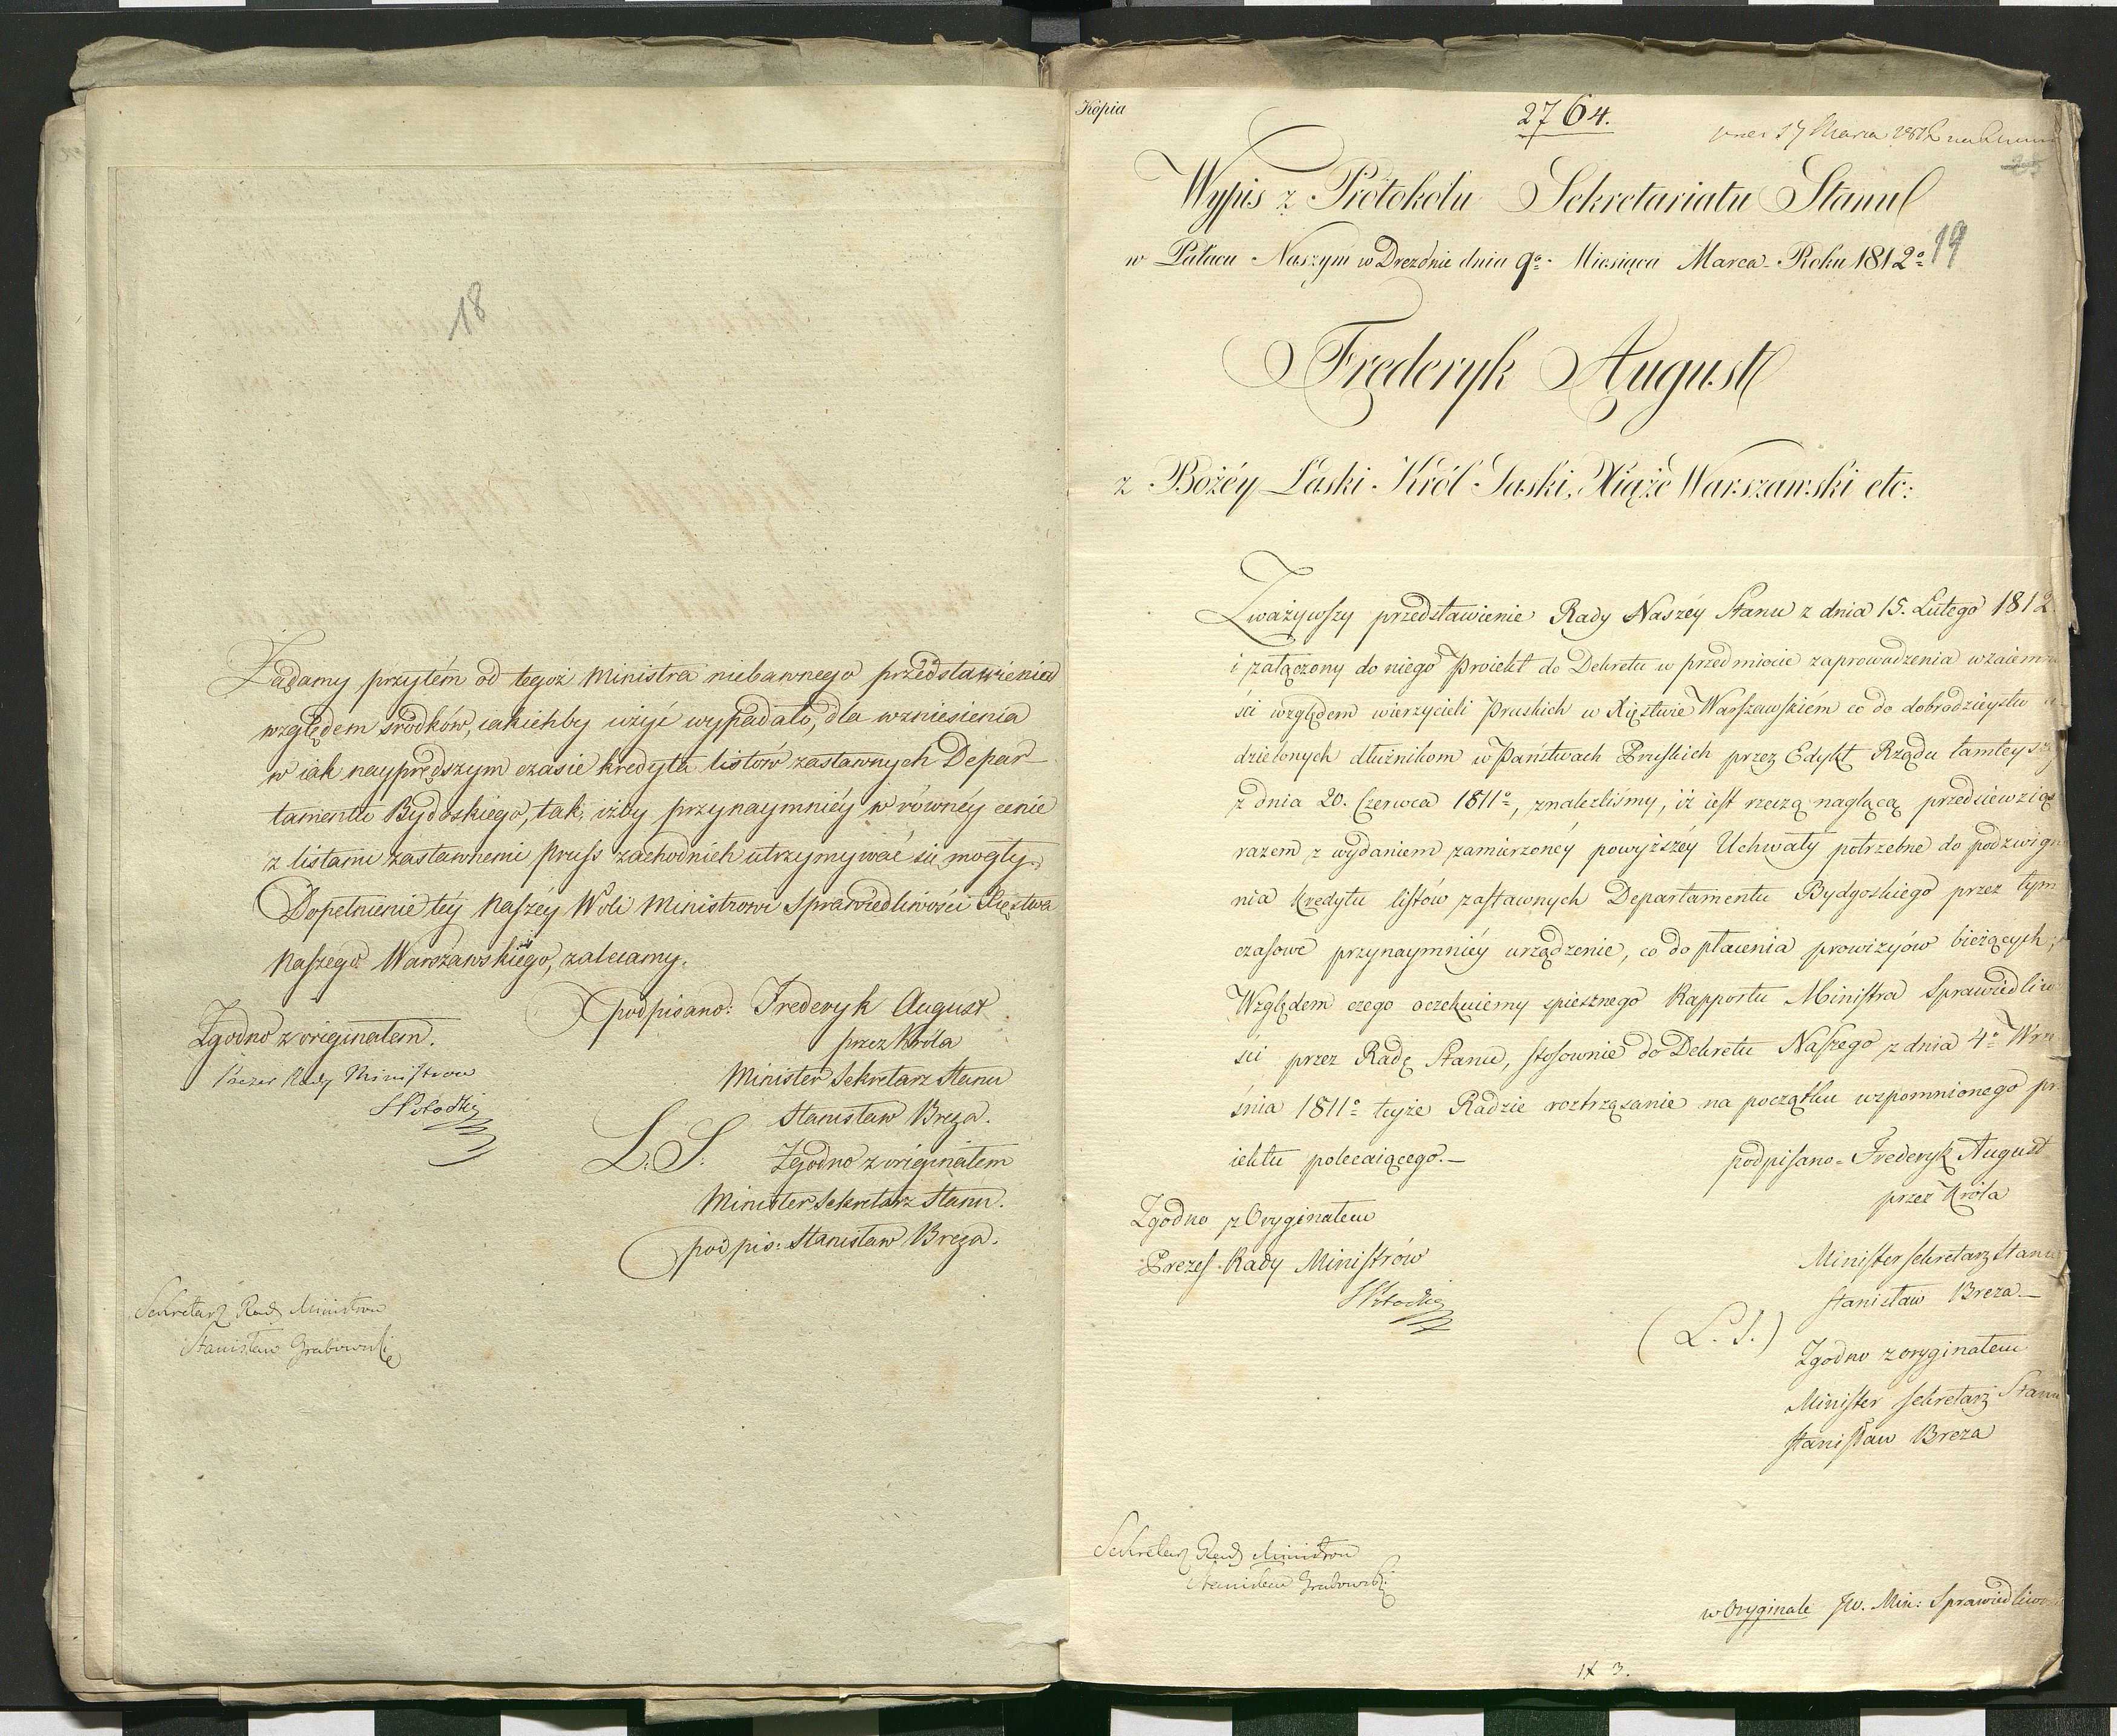 18
Żądamy przytém od tegoż Ministra niebawnego przedstawienia
względem srodków, iakichby użyć wypadało, dla wzniesienia
w iak nayprędszym czasie kredytu listów zastawnych Depar-
tamentu Bydoskiego, tak, iżby przynaymniéy w równéy cenie
z listami zastawnemi Pruss zachodnich utrzymywać się mogły.
Dopełnienie téy Naszéy Woli Ministrowi Sprawiedliwości Xięstwa
Naszego Warszawskiego, zalecamy.
podpisano: Frederyk August
przez Króla
Minister Sekretarz Stanu
Stanisław Breza.
L. S. Zgodno z originałem
Minister Sekretarz Stanu.
podpis: Stanisław Breza.
Zgodno z originałem.
Prezes Rady Ministrow
S Potocki
Sekretarz Rady Ministrow
Stanisław Grabowski
Kopia
2764.
17 Marca 1812
19
Wypis z Protokołu Sekretariatu Stanu
w Pałacu Naszym w Dreźnie dnia 9o Miesiąca Marca Roku 1812o
Frederyk August
z Bożéy Łaski Król Saski, Xiąże Warszawski etc:
Zważywszy przedstawienie Rady Naszéy Stanu z dnia 15. Lutego 1812
i załączony do niego Proiekt do Dekretu w przedmiocie zaprowadzenia wzaiemno
ści względem wierzycieli Pruskich w Xięstwie Warszawskiém co do dobrodzieystw u
dzielonych dłużnikom w Państwach Pruskich przez Edykt Rządu tamteysz
z dnia 20. Czerwca 1811o, znaleźliśmy, iż iest rzeczą naglącą przedsiewziąć
razem z wydaniem zamierzonéy powyższéy Uchwały potrzebne do podzwign
nia kredytu listów zastawnych Departamentu Bydgoskiego przez tym
czasowe przynaymniéy urządzenie, co do płacenia prowizyów bieżących;
Względem czego oczekuiemy spiesznego Rapportu Ministra Sprawiedliwo
ści przez Radę Stanu, stosownie do Dekretu Naszego z dnia 4o Wrze
śnia 1811o teyże Radzie roztrząsanie na początku wspomnionego pr
iektu polecaiącego.—
podpisano= Frederyk August
przez Króla
Minister Sekretarz Stanu
Stanisław Breza—
(L. S.)
Zgodno z oryginałem
Minister Sekretarz Stanu
Stanisław Breza
Zgodno z Oryginałem
Prezes Rady Ministrów
S Potocki
Sekretarz Rady Ministrow
Stanisław Grabowski
w Oryginale JW. Min: Sprawiedliwo